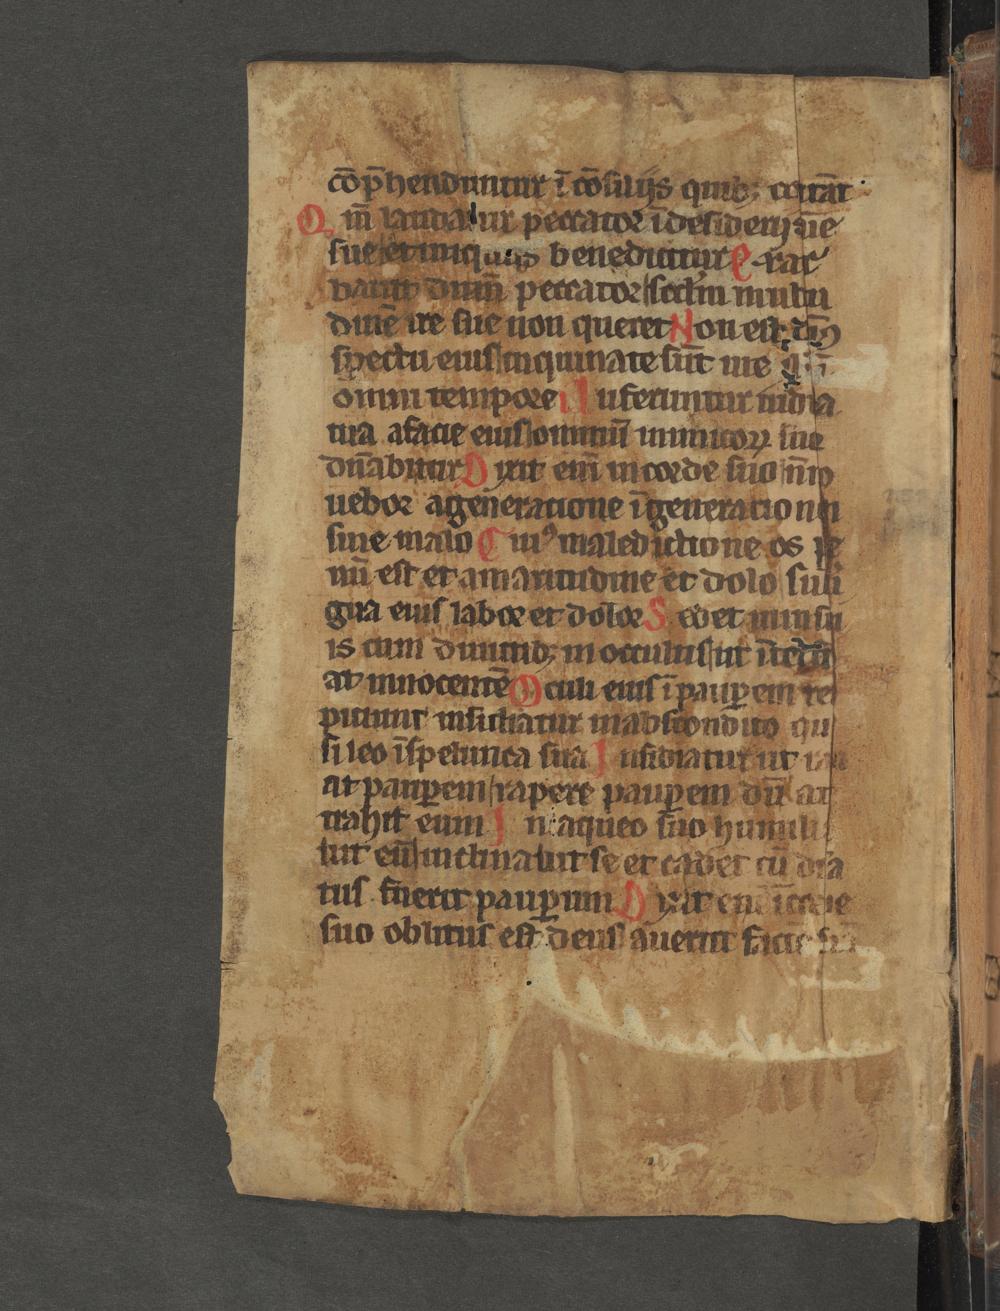 cōp̄henduntur ī cōsilijs quib; cogitāt
Qm̄ laudatur peccator ī desiderijs aīe
sue et iniquus benedicitur Exac
bavit dn̄m peccator scdm multitu
dinē ire sue non queret Non est ds̄
spectu eius inquinate sūt uie
omni tempore Auferuntur iudicia
tua a facie eius omniū inimicorꝝ suo
dn̄abitur Dixit em̄ in corde suo nō
uebor a gen̄eratione ī generationē
sine malo Cuiꝰ maledictione os ple
nū est et amaritudine et dolo sub li
gua eius labor et dolor Sedet in insi
is cum diuitib; in occultis ut ītefici
at innocentē Oculi eius ī paup̱em re
piciunt insidiatur in abscondito qua
si leo ī spelunca sua Insidiatur ut rapi
at paup̱em rapere paup̱em dū at
trahit eum In laqueo suo humilia
bit eū inclinabit se et cadet cū dn̄a
tus fuerit paup̱um Dixit em̄ ī corde
suo oblitus est deus auertit faciē suā